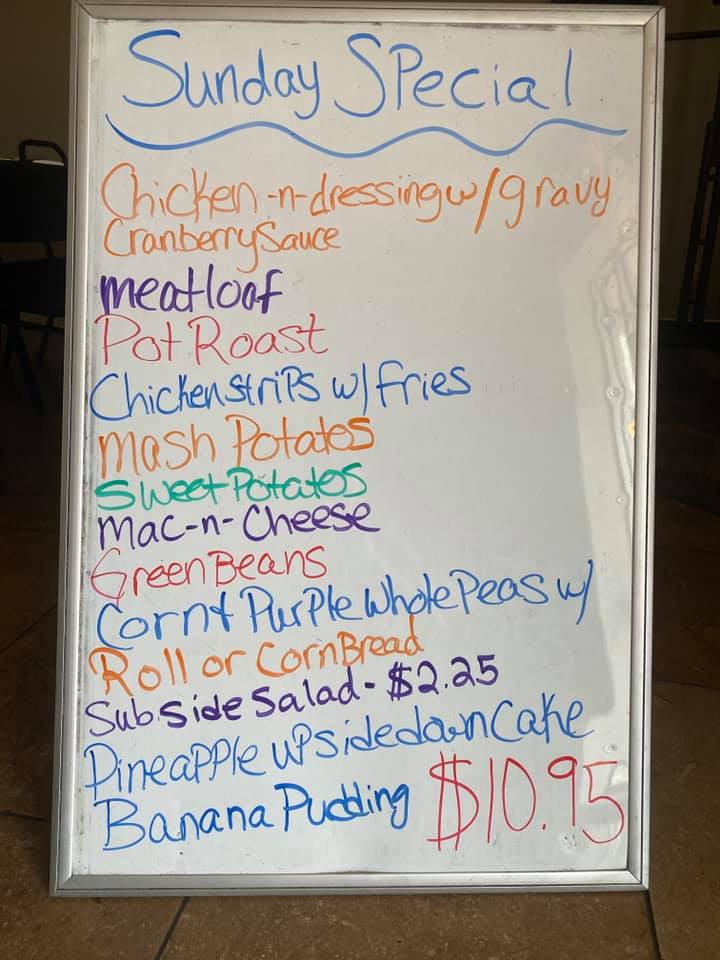 Sunday Special
Chicken-n-dressing w/gravy
Cranberry Sauce
meatloaf
Pot Roast
Chicken strips w/ fries
Mash Potatos
Sweet Potatos
Mac-n-Cheese
Green Beans
Corn & Purple Whole Peas w/
Roll or CornBread
Sub side salad - $2.25
Pineapple upsidedown Cake
Banana Pudding $10.95